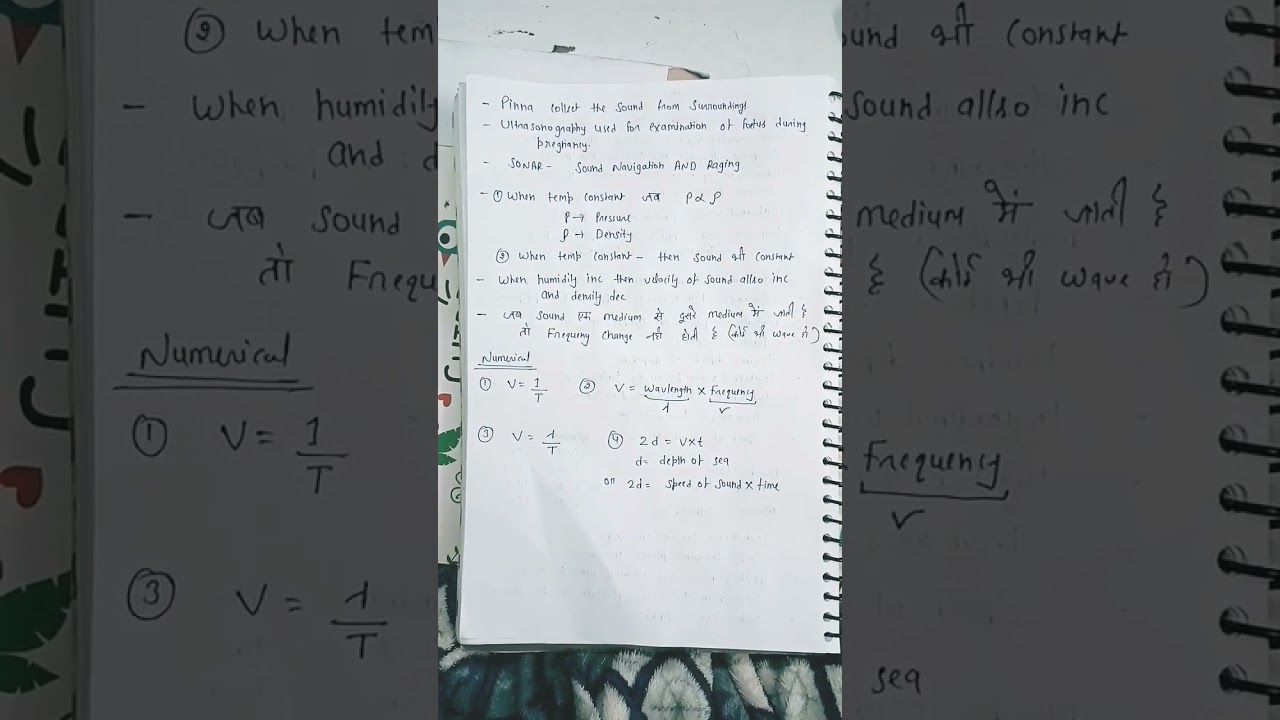 - Pinna collect the sound from Surroundings.
- Ultrasonography used for examination of foetus during
pregnancy.
- SONAR - Sound Navigation AND Raging
- ① When temp constant जब P∝ρ
P → Pressure
ρ → Density
② When temp constant - then sound भी constant
- When humidily inc then velocity of sound allso inc
and density dec
- जब sound एक medium से दुसरे medium में जाती है
तो Frequency change नही होती है (कोई भी wave हो)
Numerical
① V = 1/T ② V = Wavlength × Frequency
λ v
③ V = λ/T ④ 2d = v×t
d = depth of sea
or 2d = speed of sound × time